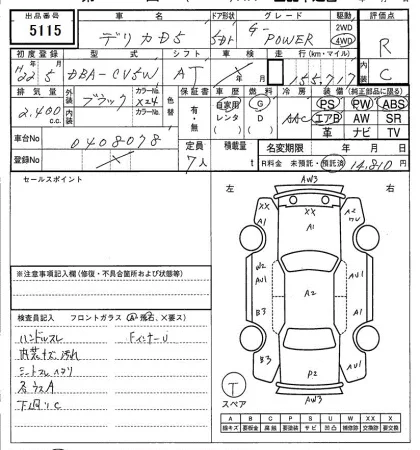 出品番号 車名 ドア形状 グレード 駆動 評価点
5115 デリカD5 5ドア G-POWER 2WD 4WD R
初度登録 型式 シフト 車検 走行(km・マイル) C
H22年5月 DBA-CV5W AT 155,717
排気量 外装 カラーNo. 色替 保証書 車歴 燃料 冷房 装備(純正部品に限る)
2,400 c.c. ブラック X24 有・無 自家用 レンタ G D AAC PS PW ABS
内装 カラーNo. エアB AW SR
革 ナビ TV
車台No 0408078 定員 7人 積載量 t 名変期限 年 月 日
登録No R料金 未預託・預託済 14,810円
セールスポイント
左 右
AW3
XX XX A2
A1 A1 A1
W2 AU1 A2 AU1
B3 A1
B3 P2 AU1
AW3
T
スペア
※注意事項記入欄(修復・不具合箇所および状態等)
検査員記入 フロントガラス (A飛石、X要ス)
ハンドルスレ FインナーU
内装キズ、汚れ
シートスレ ヘタリ
ルーフA
下廻りC
A B C P S U W X XX
線キズ 要板金 腐蝕 要塗装 サビ 凹凸 補修跡 交換跡 要交換